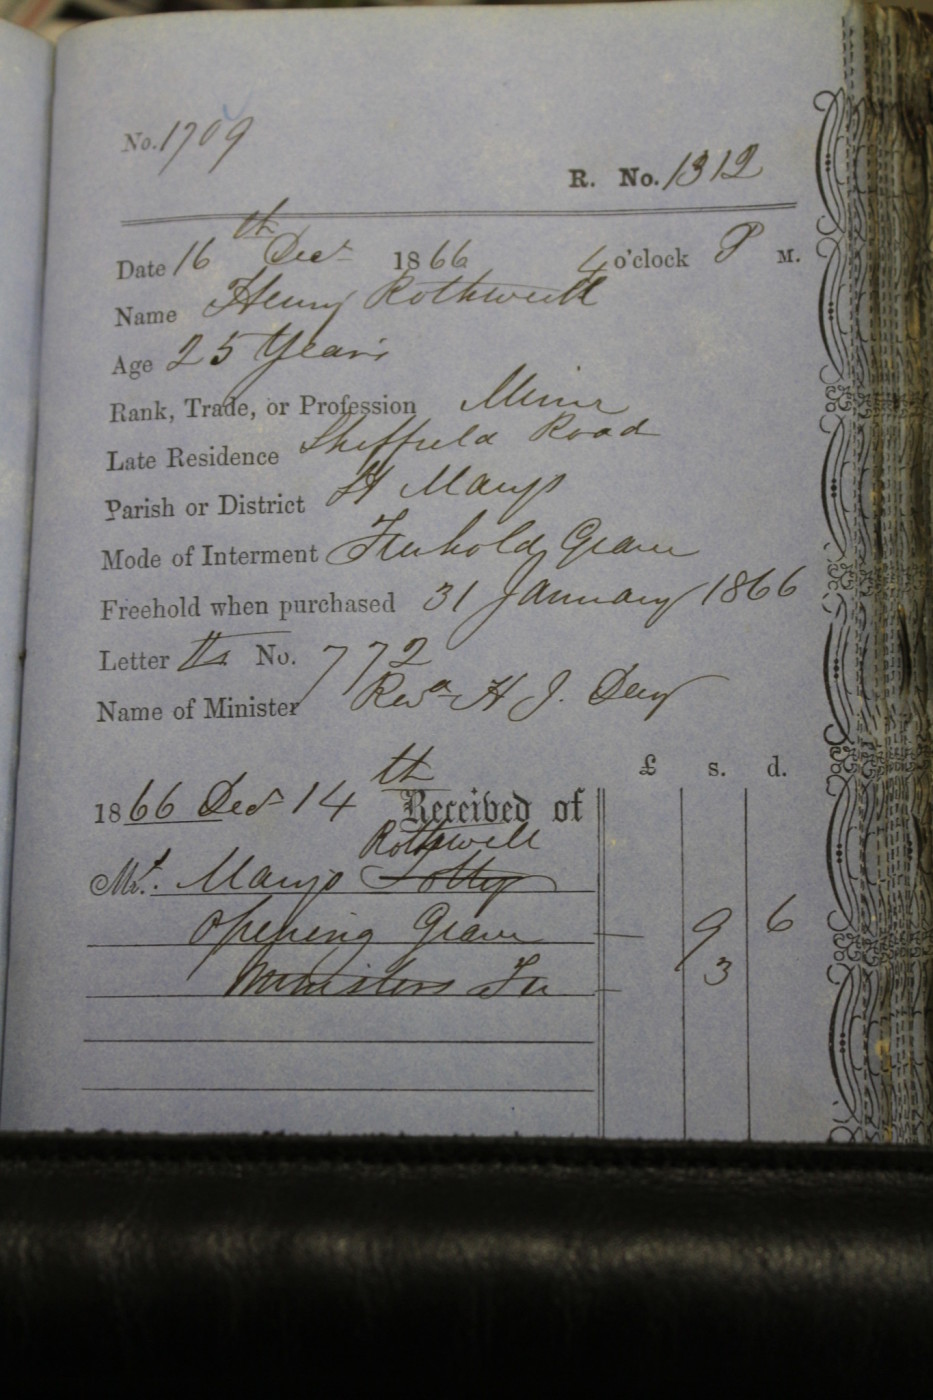 No. 1709
R. No. 1312
Date 16th Decr 1866 4 o'clock P M.
Name Henry Rothwell
Age 25 Years
Rank, Trade, or Profession Miner
Late Residence Sheffield Road
Parish or District St Marys
Mode of Interment Freehold Grave
Freehold when purchased 31 January 1866
Letter No. 772
Name of Minister Revd H J. Day
£ s. d.
1866 Decr 14th Received of
Rothwell
Mrs. Marys
Opening Grave — 9 6
Ministers Fee — 3